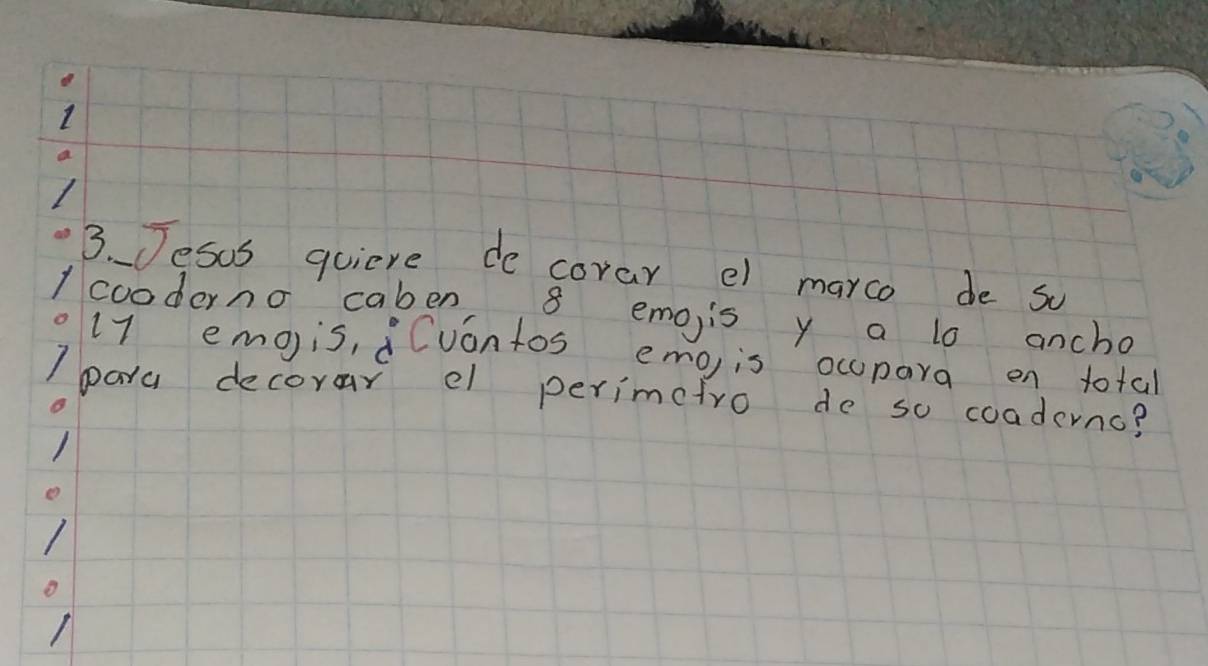 3._Jesus quiere de corar el marco de su
cuoderno caben 8 emojis y a lo ancho
17 emojis, ¿Cuántos emojis ocupara en total
para decorar el perimetro de su cuaderno?